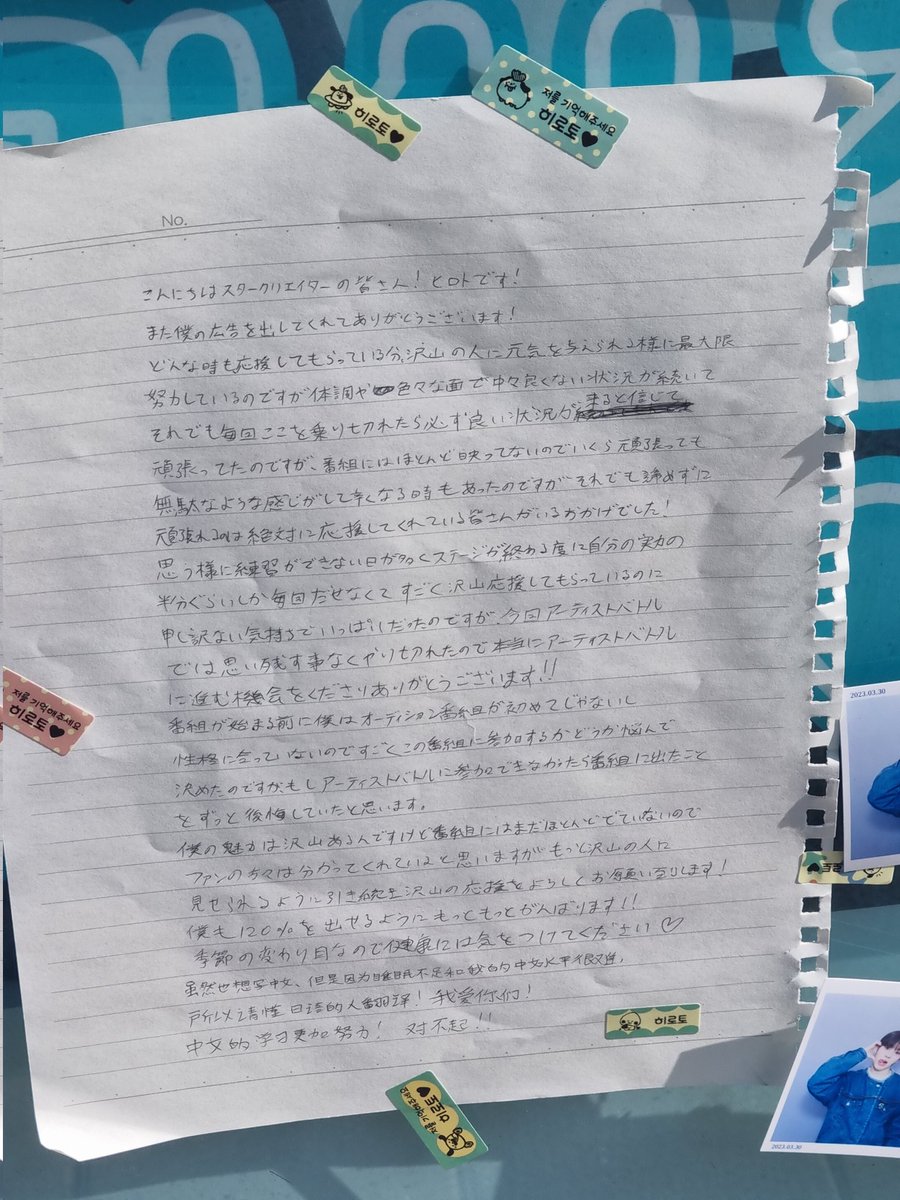 히로토♥
저를 기억해주세요
히로토♥
No.
こんにちはスタークリエイターの皆さん！ヒロトです！
また僕の広告を出してくれてありがとうございます！
どんな時も応援してもらっている分、沢山の人に元気を与えられる様に最大限
努力しているのですが体調や色々な面で中々良くない状況が続いて
それでも毎回ここを乗り切れたら必ず良い状況が来ると信じて
頑張ってたのですが、番組にはほとんど映ってないのでいくら頑張っても
無駄なような感じがして辛くなる時もあったのですがそれでも諦めずに
頑張れるのは絶対に応援してくれている皆さんがいるおかげでした！
思う様に練習ができない日が多くステージが終わる度に自分の実力の
半分ぐらいしか毎回だせなくてすごく沢山応援してもらっているのに
申し訳ない気持ちでいっぱいだったのですが、今回アーティストバトル
では思い残す事なくやり切れたので本当にアーティストバトル
に進む機会をくださりありがとうございます！！
番組が始まる前に僕はオーディション番組が初めてじゃないし
性格に合っていないのですごくこの番組に参加するかどうか悩んで
決めたのですが、もしアーティストバトルに参加できなかったら番組に出たこと
をずっと後悔していたと思います。
僕の魅力は沢山あるんですけど番組にはまだほとんどでていないので
ファンの方々は分かってくれていると思いますがもっと沢山の人に
見せられるように引き続き沢山の応援をよろしくお願い致します！
僕も120%を出せるようにもっともっとがんばります！！
季節の変わり目なので健康には気をつけてください♡
虽然也想写中文、但是因为睡眠不足和我的中文水平很
所以请懂日语的人翻译！我爱你们！
中文的学习更加努力！ 对不起！！
저를 기억해주세요
히로토♥
히로토
저를 기억해주세요
히로토♥
2023.03.30
2023.03.30